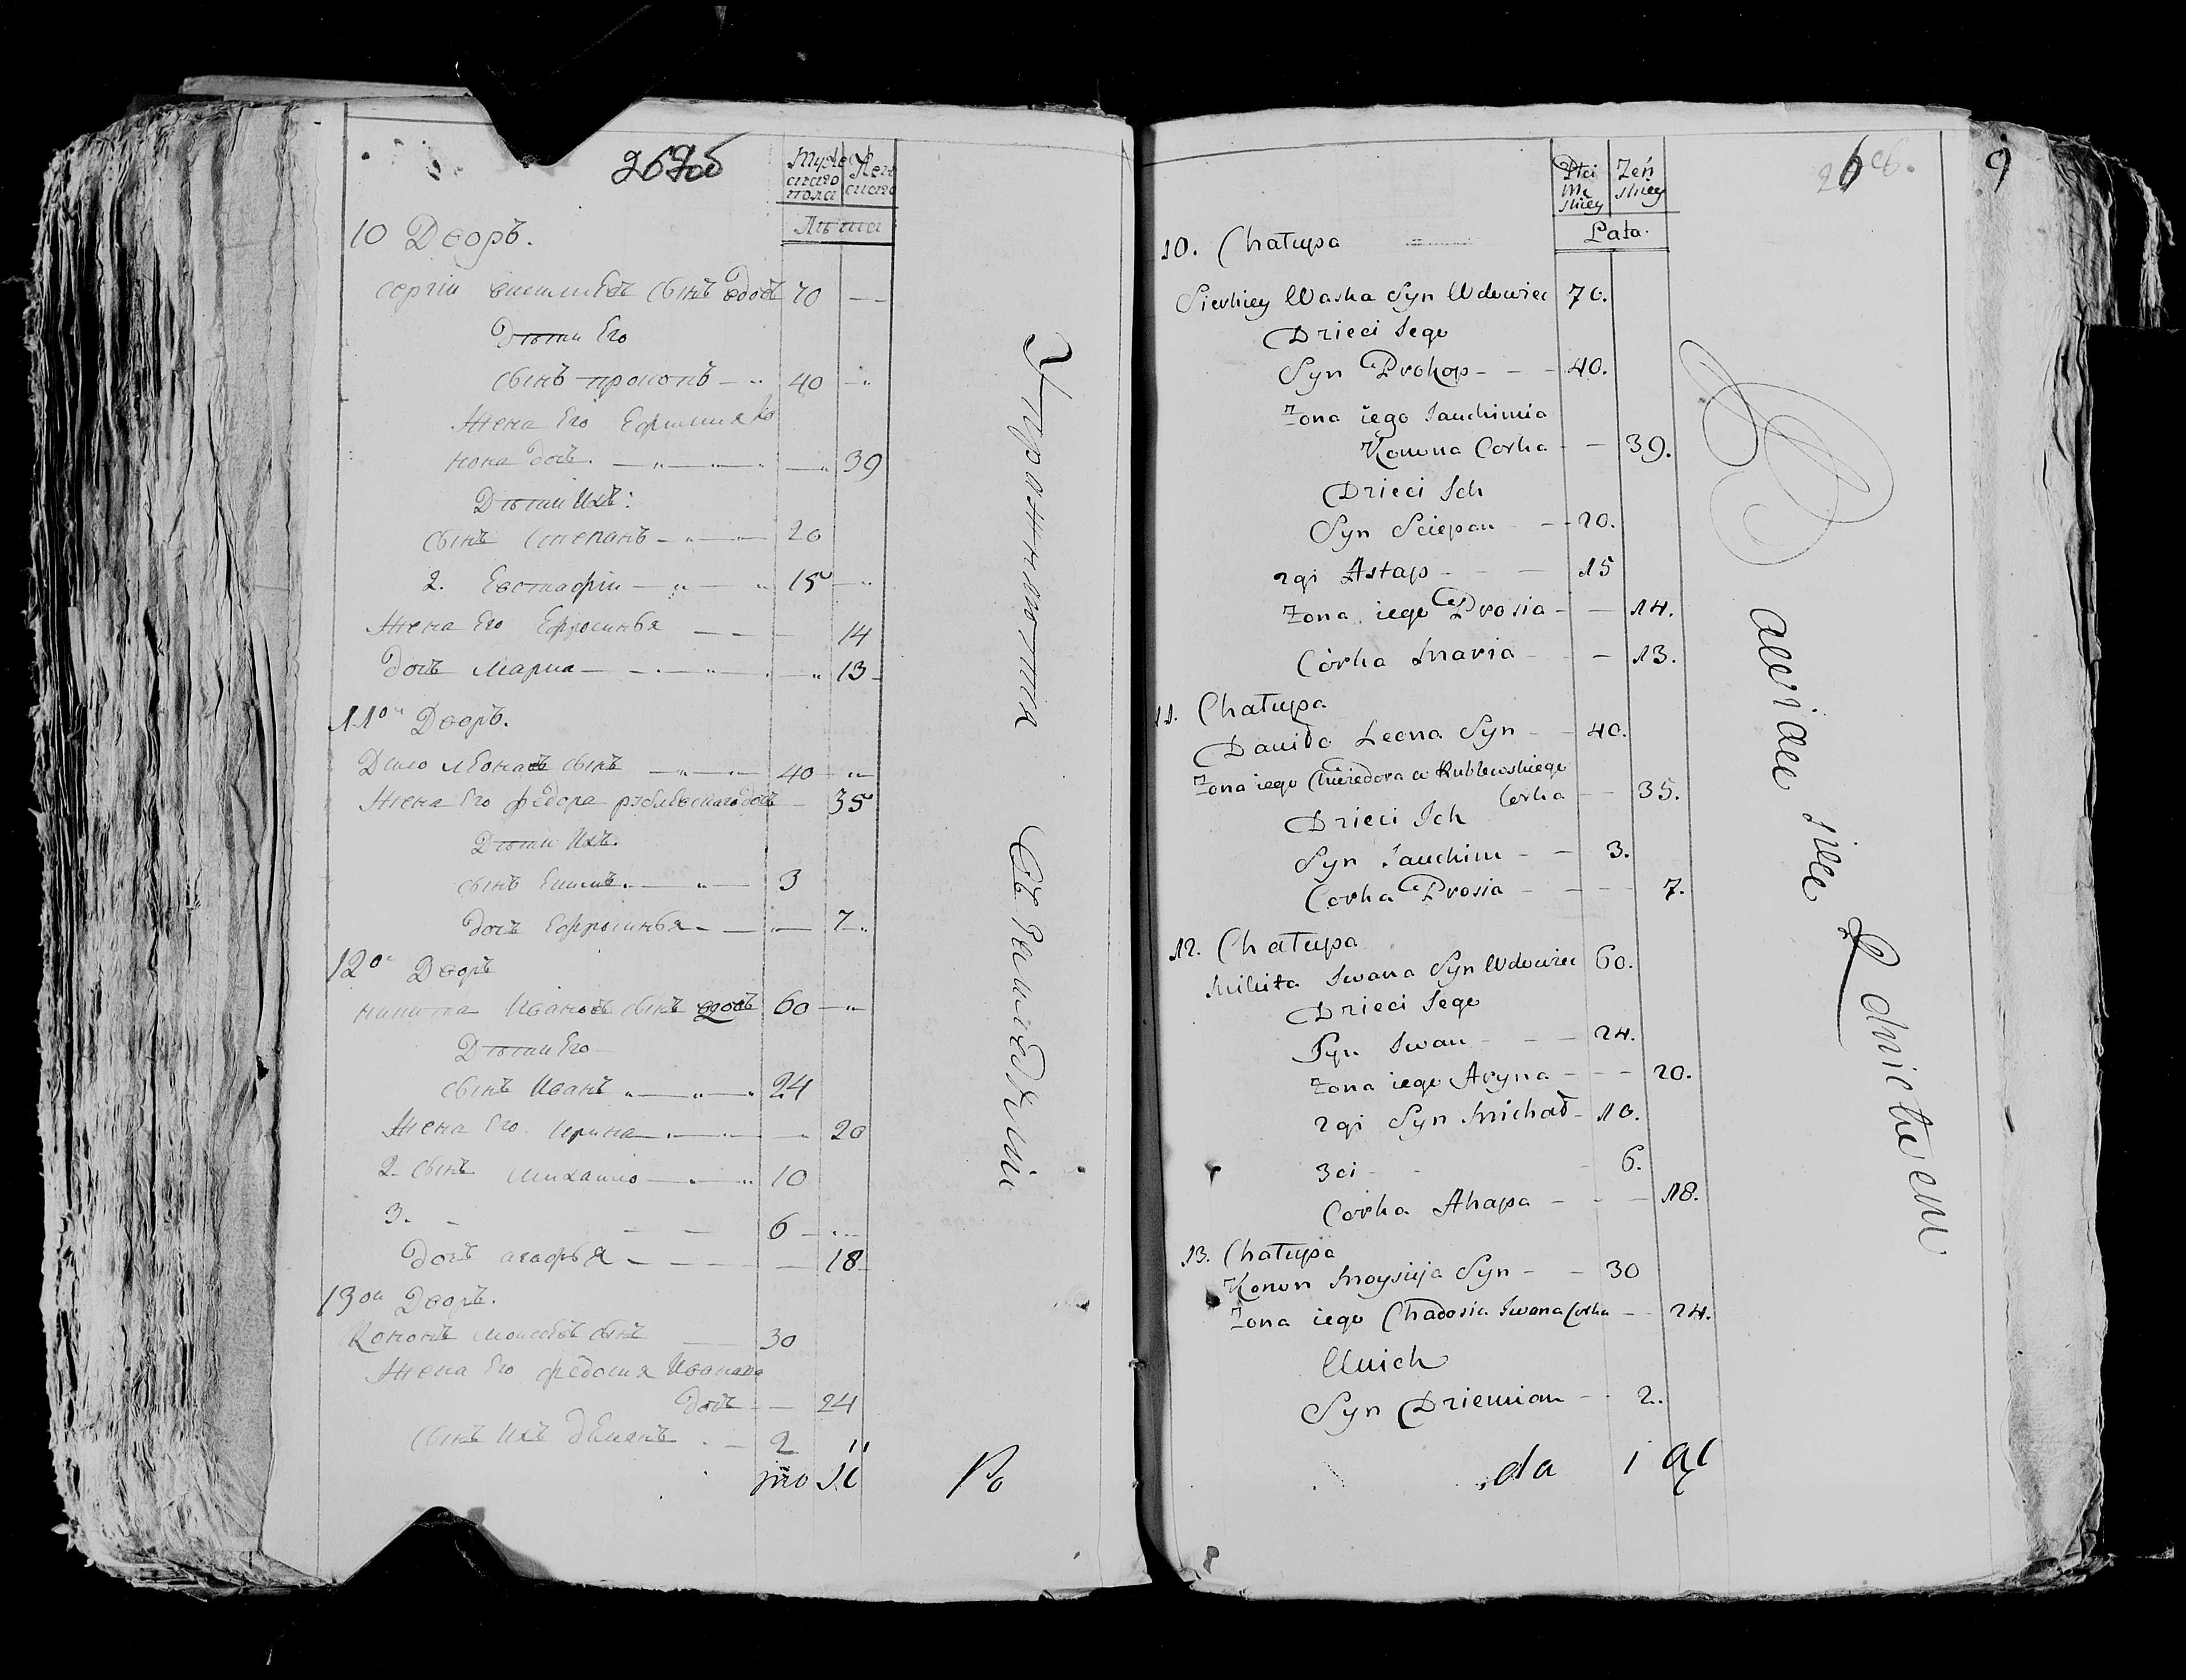 10 Дворъ.
Мужескаго пола
Женскаго
Лѣта
Сергій Василіевъ сынъ вдовъ 70 —
Дѣти Его
сынъ прокопъ — 40 —
Жена Его Ефимия Ко
нона дочь. — — 39
Дѣти Ихъ:
сынъ Степанъ — 20
2. Евстафій — 15 —
Жена Его Ефросинья — — 14
дочь Мария — — 13
11о Дворъ.
Леонавъ сынъ — 40 —
Жена Его федора рублевскаго дочь — 35
Дѣти Ихъ.
сынъ Ефимъ — 3
дочь Ефросинья — — 7
12о Дворъ
никита Ивановъ сынъ вдовъ 60 —
Дѣти Его
сынъ Иванъ — 24
Жена Его Ирина — — 20
2. сынъ Михаило — 10
3. — — — 6 —
дочь агафья — — 18
13ои Дворъ.
Кононъ Моисеевъ сынъ — 30
Жена Его федосия Иванова
дочь — — 24
сынъ Ихъ демянъ — 2 "
Упражняются
Ро
10. Chałupa
Płci Mskiey
Żeńskiey
Lata.
Sierhiey Waska Syn Wdowiec 70.
Dzieci Jego
Syn Prokop - - - 40.
Żona iego Jauchimia
Konona Corka - - 39.
Dzieci Ich
Syn Sciepan - - 20.
2gi Astap - - - 15
Żona iego Prosia - - 14.
Córka Maria - - 13.
11. Chałupa
Daniło Leona Syn - - 40.
Żona iego Chwiedora a Rublewskiego
Corka - - 35.
Dzieci Ich
Syn Jauchim - - 3.
Corka Prosia - - - 7.
12. Chałupa
Mikita Iwana Syn Wdowiec 60.
Dzieci Jego
Syn Iwan - - - 24.
Żona iego Aryna - - - 20.
2gi Syn Michał - 10.
3ci - - - 6.
Corka Ahapa - - - 18.
13. Chałupa
Konon Moysieja Syn - - 30
Żona iego Chadosia Iwana Corka - - 24.
U nich
Syn Dziemian - - 2.
da i ąc
Bawiąc się Rolnictwem
9